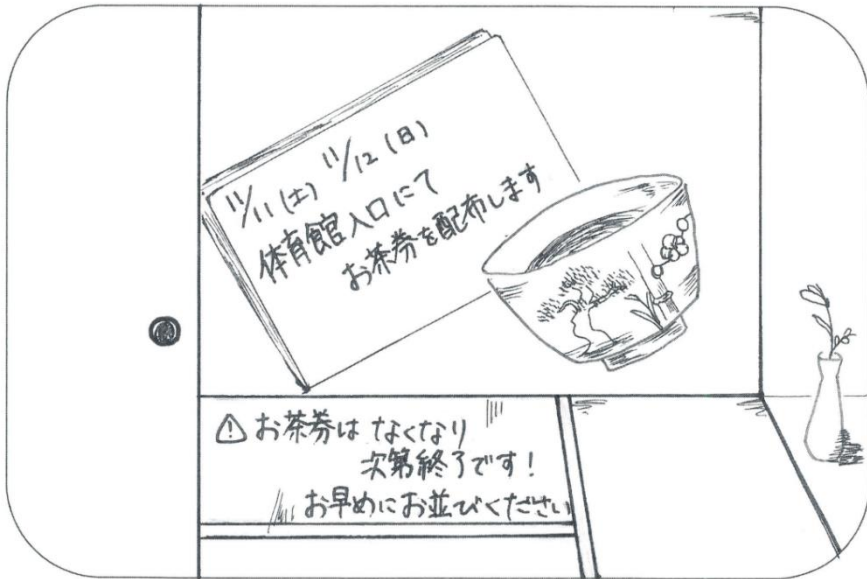 11/11(土) 11/12(日)
体育館入口にて
お茶券を配布します
⚠お茶券は なくなり
次第終了です!
お早めにお並びください